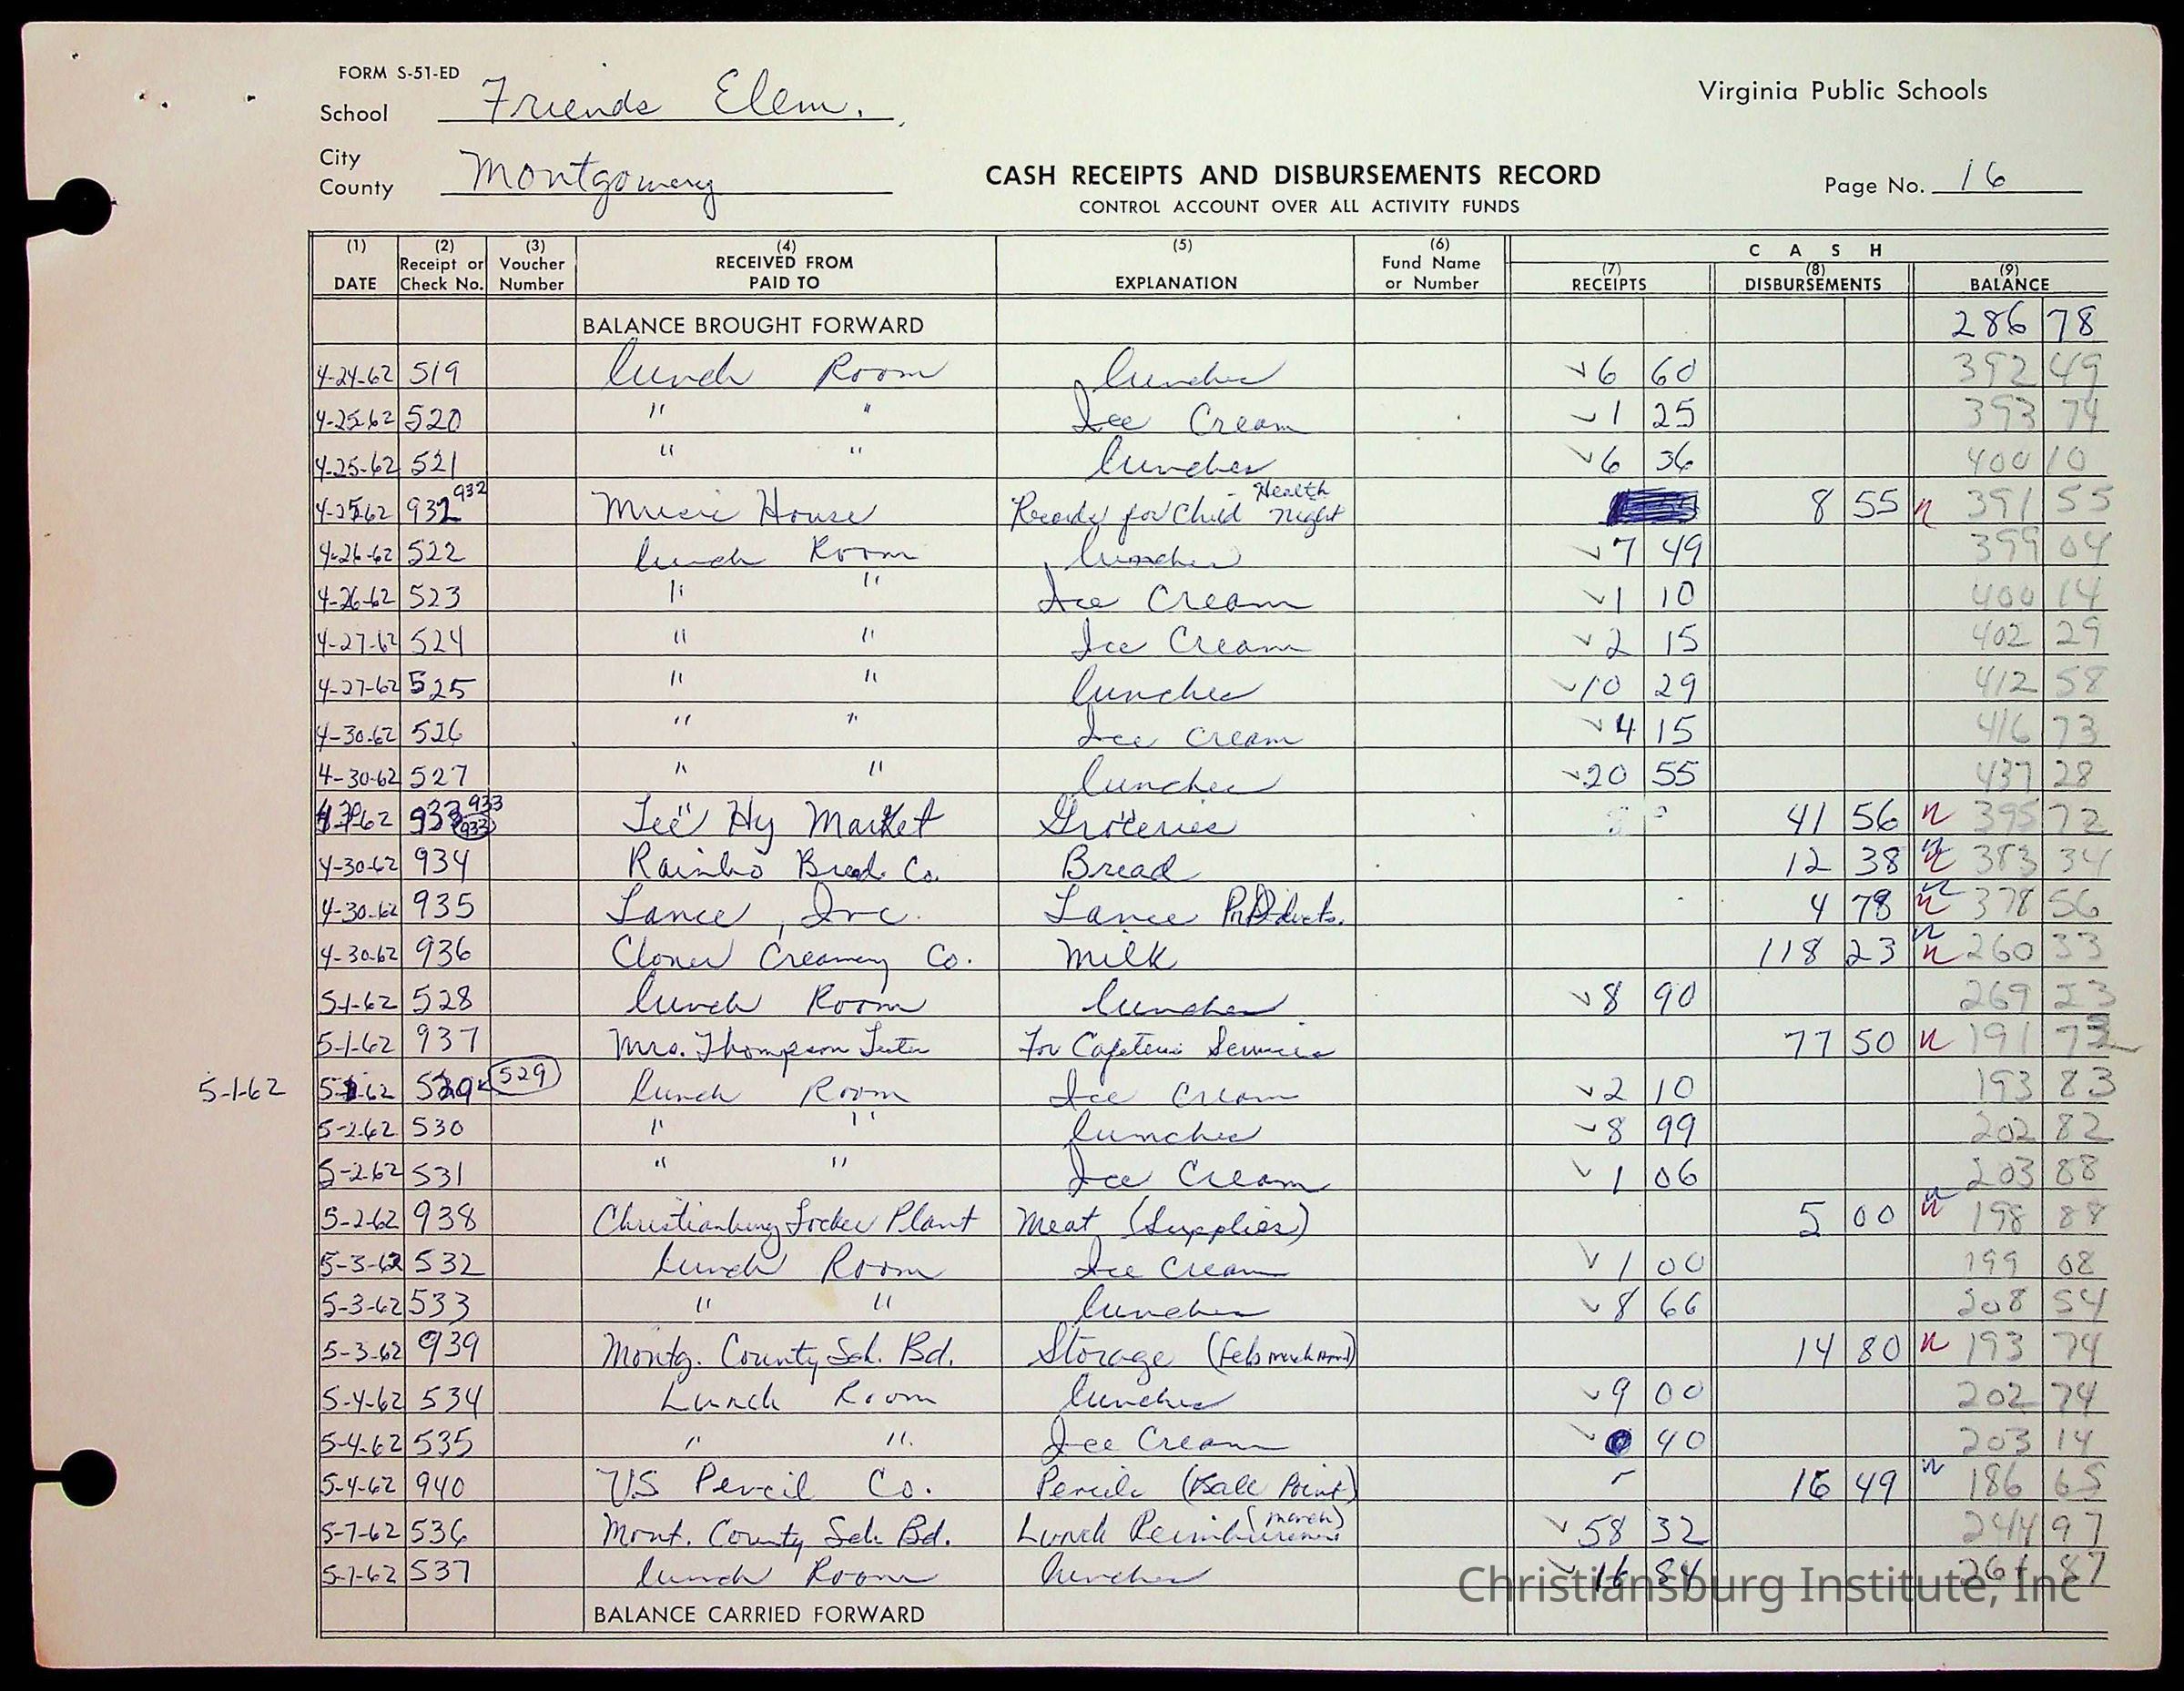 FORM S-51-ED
School Friends Elem.
Virginia Public Schools
City
County Montgomery
CASH RECEIPTS AND DISBURSEMENTS RECORD
CONTROL ACCOUNT OVER ALL ACTIVITY FUNDS
Page No. 16
(1) DATE (2) Receipt or Check No. (3) Voucher Number (4) RECEIVED FROM PAID TO (5) EXPLANATION (6) Fund Name or Number CASH (7) RECEIPTS (8) DISBURSEMENTS (9) BALANCE
BALANCE BROUGHT FORWARD 286 78
4-24-62 519 Lunch Room Lunches 6 60 392 49
4-25-62 520 " " Ice Cream 1 25 393 74
4-25-62 521 " " Lunches 6 36 400 10
4-25-62 932 932 Music House Records for Child Health Night 8 55 n 391 55
4-26-62 522 Lunch Room Lunches 7 49 399 04
4-26-62 523 " " Ice Cream 1 10 400 14
4-27-62 524 " " Ice Cream 2 15 402 29
4-27-62 525 " " Lunches 10 29 412 58
4-30-62 526 " " Ice Cream 4 15 416 73
4-30-62 527 " " Lunches 20 55 437 28
62 933 933 933 Hy Market Groceries 41 56 n 395 72
4-30-62 934 Rainbo Bread Co. Bread 12 38 n 383 34
4-30-62 935 Lance, Inc. Lance Products. 4 78 n 378 56
4-30-62 936 Clover Creamery Co. Milk 118 23 n 260 33
5-1-62 528 Lunch Room Lunches 8 90 269 23
5-1-62 937 Mrs. Thompson Teeter For Cafeteria Services 77 50 n 191 73
5-1-62 5-1-62 529 529 Lunch Room Ice Cream 2 10 193 83
5-2-62 530 " " Lunches 8 99 202 82
5-2-62 531 " " Ice Cream 1 06 203 88
5-2-62 938 Christianburg Locker Plant Meat (Supplies) 5 00 n 198 88
5-3-62 532 Lunch Room Ice Cream 1 00 199 08
5-3-62 533 " " Lunches 8 66 208 54
5-3-62 939 Montg. County Sch. Bd. Storage (Feb March April) 14 80 n 193 74
5-4-62 534 Lunch Room Lunches 9 00 202 74
5-4-62 535 " " Ice Cream 0 40 203 14
5-4-62 940 U.S Pencil Co. Pencils (Ball Point) 16 49 n 186 65
5-7-62 536 Mont. County Sch. Bd. Lunch Reimbursement (March) 58 32 244 97
5-7-62 537 Lunch Room Lunches 16 84 261 87
BALANCE CARRIED FORWARD
Christiansburg Institute, Inc